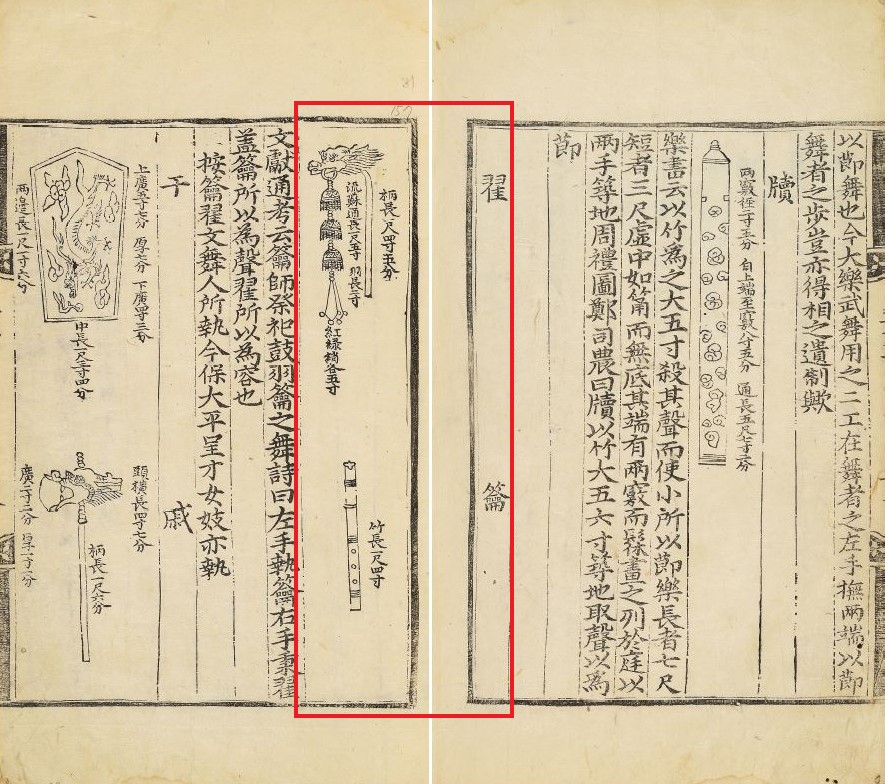 以節舞也今大樂武舞用之二工在舞者之左手撫兩端以節
舞者之步豈亦得相之遺制歟
牘
兩竅徑二寸五分 自上端至竅八寸五分 通長五尺七寸二分
樂書云以竹爲之大五寸殺其聲而使小所以節樂長者七尺
短者三尺虛中如筩而無底其端有兩竅而髹畫之列於庭以
兩手築地周禮圖鄭司農曰牘以竹大五六寸築地取聲以爲
節
翟
籥
柄長一尺四寸五分
流蘇通長一尺五寸 羽長三寸
紅綠綃各五寸
竹長一尺四寸
文獻通考云籥師祭祀鼓羽籥之舞詩曰左手執籥右手秉翟
盖籥所以為聲翟所以為容也
按籥翟文舞人所執今保大平呈才女妓亦執
干
戚
上廣五寸七分 厚七分 下廣四寸三分
中長一尺三寸四分
兩邊長一尺一寸六分
頭橫長四寸七分
柄長一尺六分